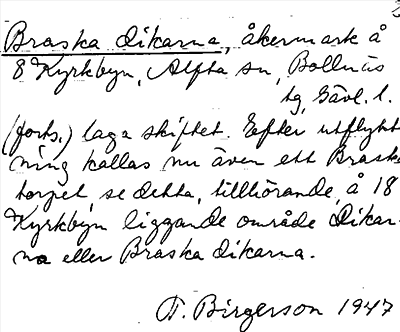 Braska dikarna, åkermark å
8 Kyrkbyn, Alfta sn, Bollnäs
tg, Gävl. l.
(forts.) laga skiftet. Efter utflytt
ning kallas nu även ett Braska
torpet, se detta, tillhörande, å 18
Kyrkbyn liggande område Dikar-
na eller Braska dikarna.
T. Birgerson 1947